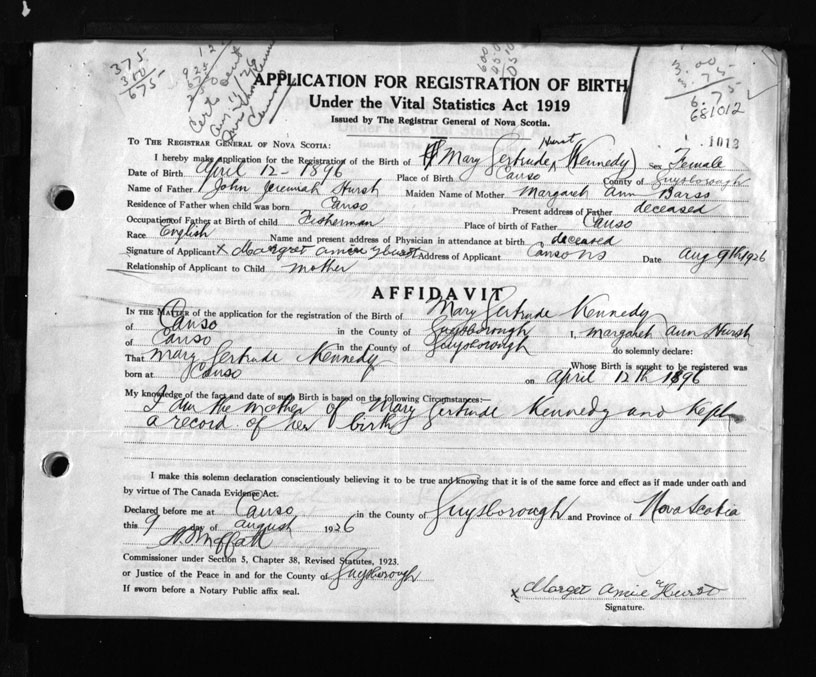 375
300
675
12
925
675
250
Cert sent
Aug 11/26
600
050
050
3.00
3.75
6.75
681012
APPLICATION FOR REGISTRATION OF BIRTH
Under the Vital Statistics Act 1919
Issued by The Registrar General of Nova Scotia.
1013
TO THE REGISTRAR GENERAL OF NOVA SCOTIA:
I hereby make application for the Registration of the Birth of Mary Gertrude Hurst (Kennedy) Sex Female
Date of Birth April 12 - 1896 Place of Birth Canso County of Guysborough
Name of Father John Jeremiah Hursh Maiden Name of Mother Margareh Ann Barss
Residence of Father when child was born Canso Present address of Father deceased
Occupation of Father at Birth of child Fisherman Place of birth of Father Canso
Race English Name and present address of Physician in attendance at birth deceased
Signature of Applicant x Margret Hurst Address of Applicant Canso NS Date Aug 9th 1926
Relationship of Applicant to Child mother
AFFIDAVIT
IN THE MATTER of the application for the registration of the Birth of Mary Gertrude Kennedy
of Canso in the County of Guysborough I, Margareh Ann Hursh
of Canso in the County of Guysborough do solemnly declare:
That Mary Gertrude Kennedy Whose Birth is sought to be registered was
born at Canso on April 12th 1896
My knowledge of the fact and date of such Birth is based on the following Circumstances:—
I am the mother of Mary Gertrude Kennedy and Keph
a record of her birth
I make this solemn declaration conscientiously believing it to be true and knowing that it is of the same force and effect as if made under oath and
by virtue of The Canada Evidence Act.
Declared before me at Canso in the County of Guysborough and Province of Nova Scotia
this 9 day of August 1926
Moffatt
Commissioner under Section 5, Chapter 38, Revised Statutes, 1923.
or Justice of the Peace in and for the County of Guysborough
If sworn before a Notary Public affix seal.
x Marget Amie Hurst
Signature.